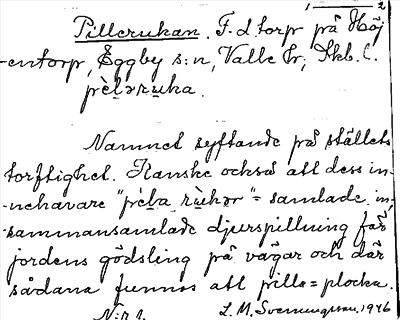 1 2
Pillerukan. F.d. torp på Höj
-entorp, Eggby s:n, Valle hr, Skb. l.
pèlərụka.
Namnet syftande på ställets
torftighet. Kanske också att dess in-
-nehavare "pèla rùkər" = samlade, in-
sammansamlade djurspillning för
jordens gödsling på vägar och där
sådana funnos att pilla = plocka.
N:r 1. L. M. Svenungsson. 1946